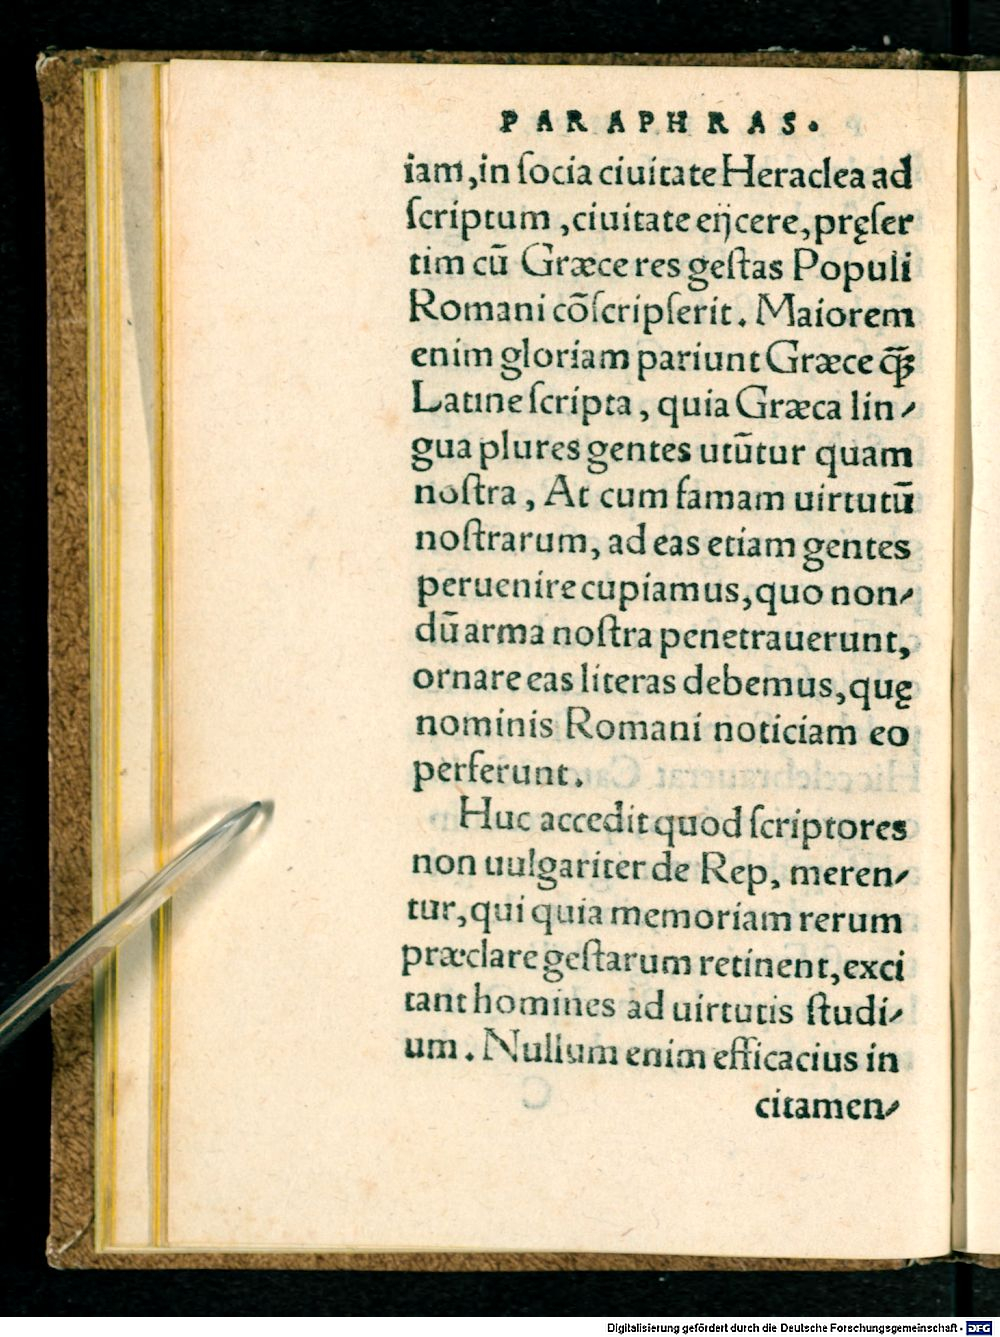 PARAPHRAS.
iam, in ſocia ciuitate Heraclea ad
ſcriptum, ciuitate eijcere, pręſer
tim cū Græce res geſtas Populi
Romani cōſcripſerit. Maiorem
enim gloriam pariunt Græce q̄ꝫ
Latine ſcripta, quia Græca lin-
gua plures gentes utūtur quam
noſtra, At cum famam uirtutū
noſtrarum, ad eas etiam gentes
peruenire cupiamus, quo non-
dū arma noſtra penetrauerunt,
ornare eas literas debemus, quę
nominis Romani noticiam eo
perferunt.
Huc accedit quod ſcriptores
non uulgariter de Rep, meren-
tur, qui quia memoriam rerum
præclare geſtarum retinent, exci
tant homines ad uirtutis ſtudi-
um. Nullum enim efficacius in
citamen-
Digitalisierung gefördert durch die Deutsche Forschungsgemeinschaft - DFG